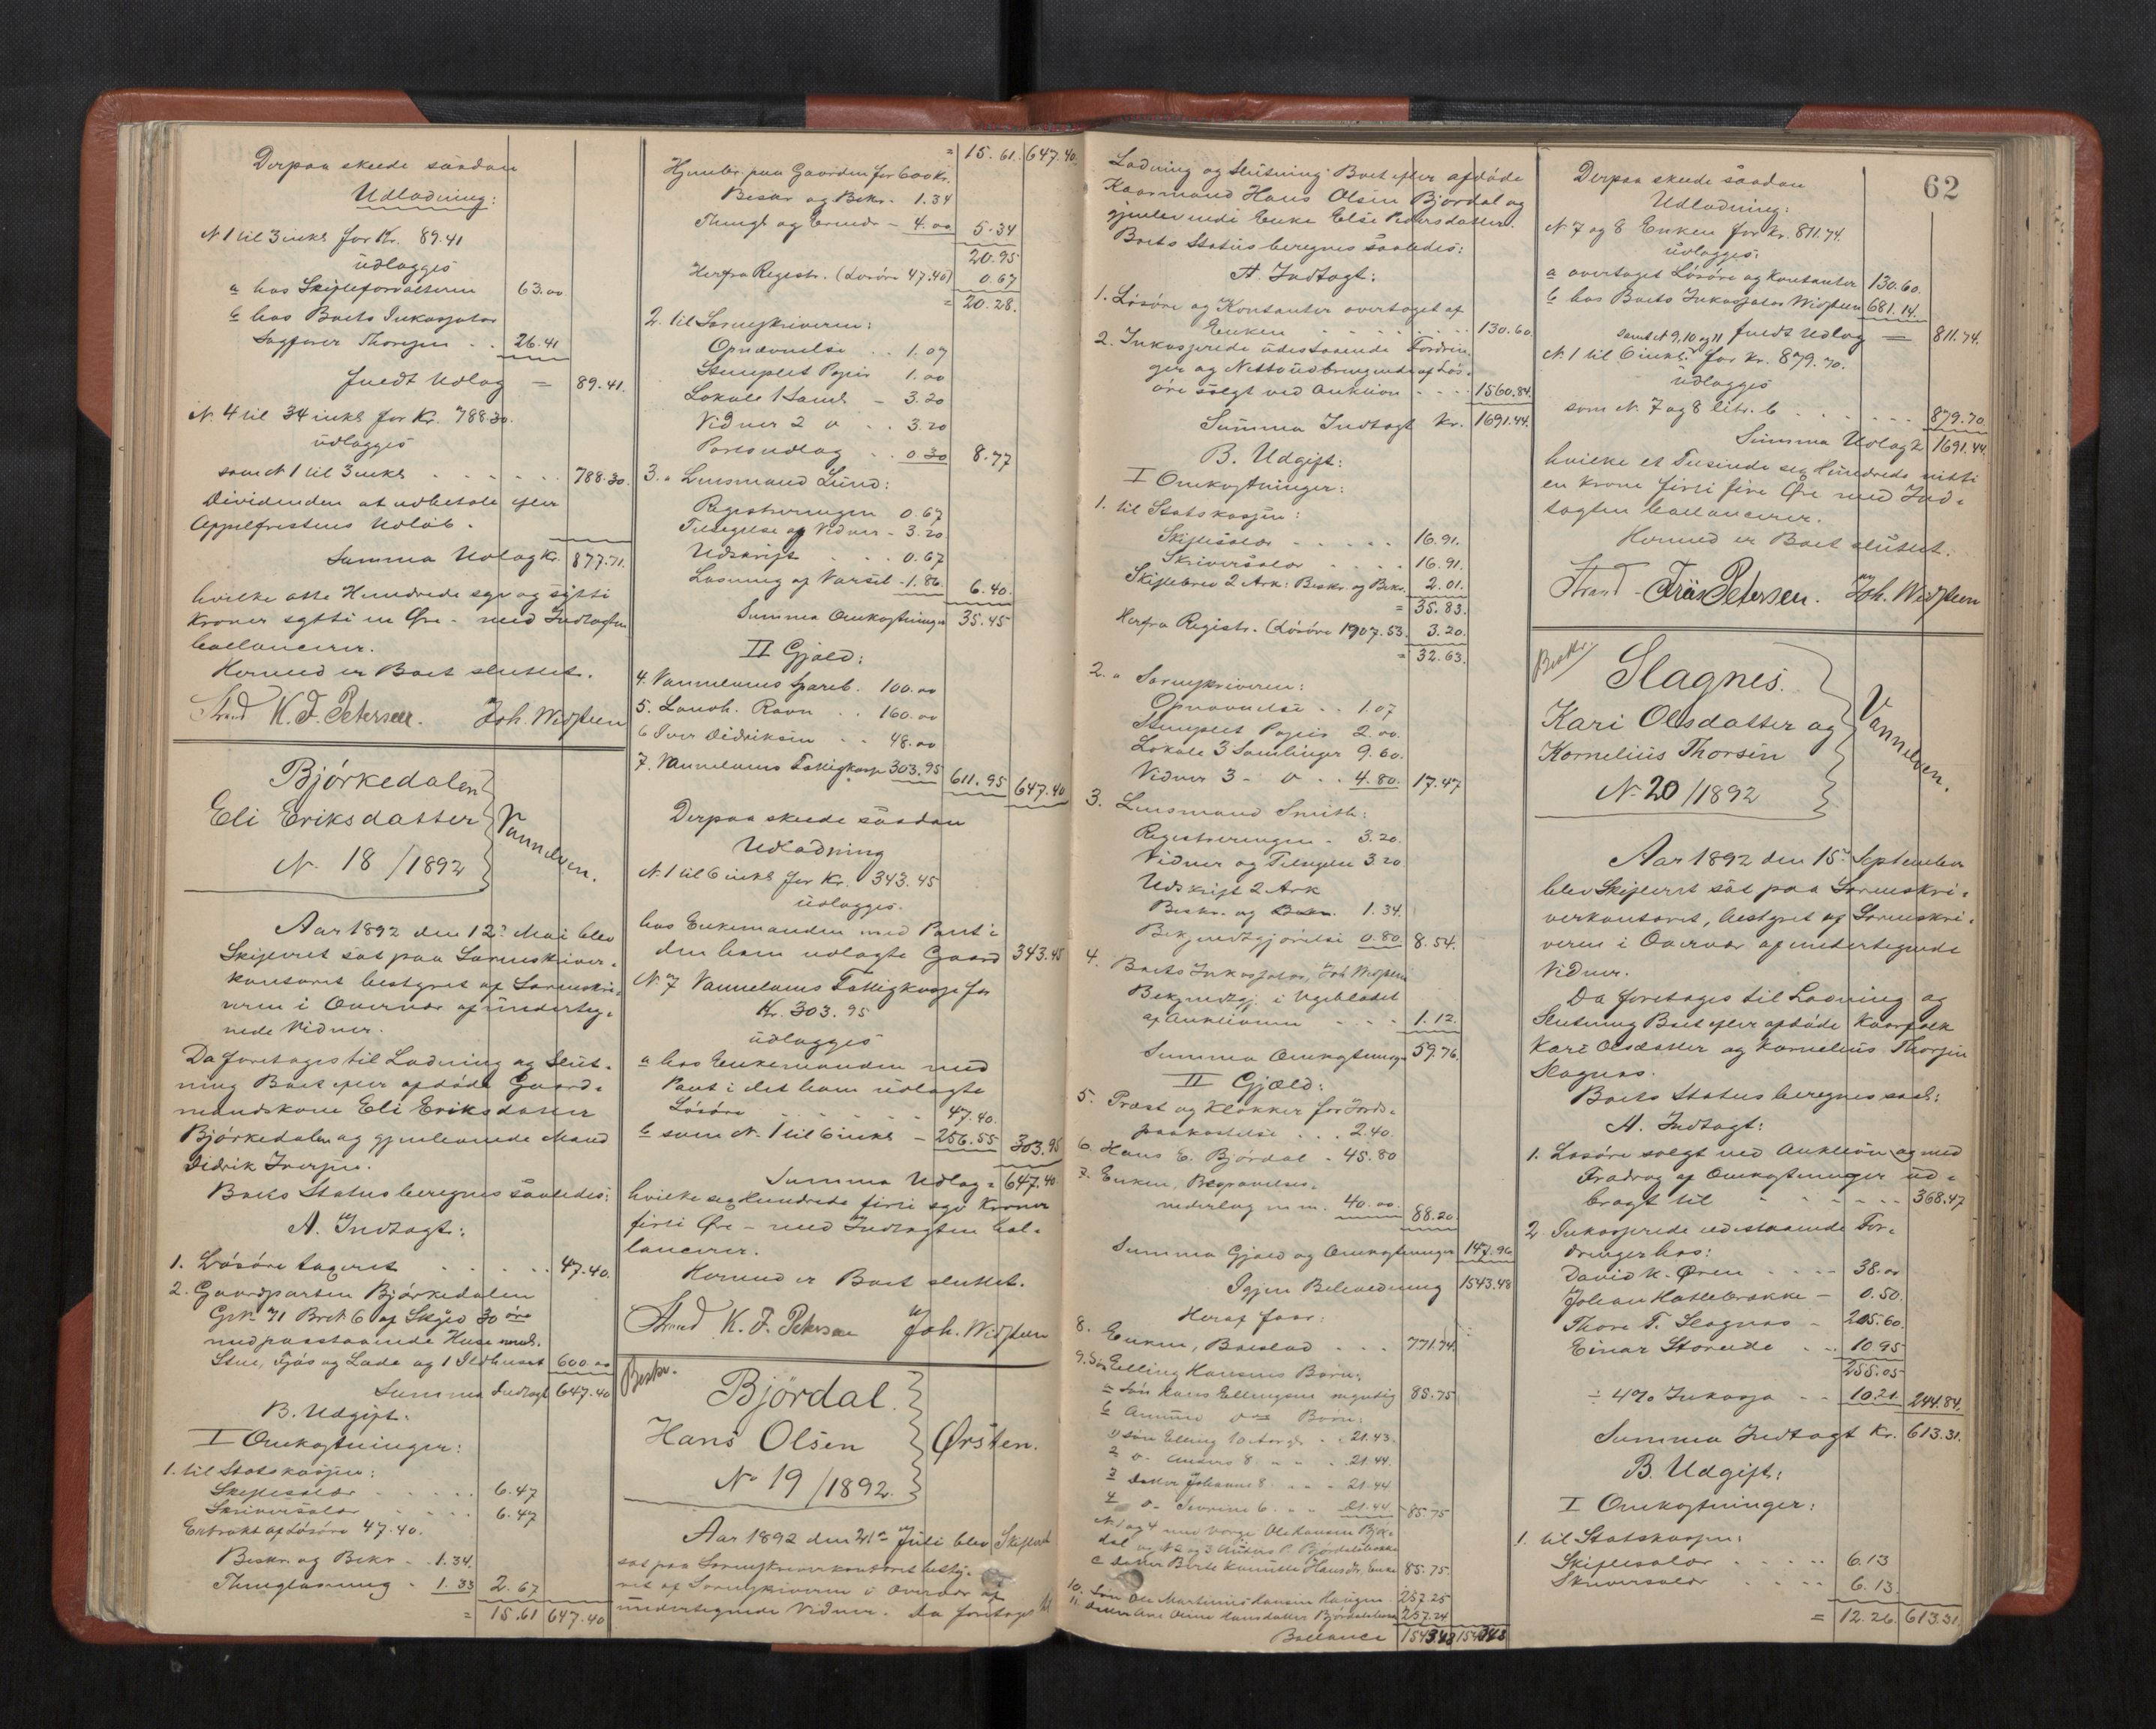 Derpaa skede saadan
Udlodning:
N. 1 til 3 inkl for Kr. 89.41
udlægges
a hos Skifteforvalteren 63.00
b hos Boets Inkassator
Sagfører Thoresen . . 26.41
fuldt Udlæg = 89.41.
N. 4 til 34 inkl for Kr. 788.30.
udlægges
som N 1 til 3 inkl . . . . . 788.30.
Dividenden at udbetale efter
Appelfristens Udløb.
Summa Udlæg Kr. 877.71.
hvilke otte Hundrede syv og sytti
Kroner sytti en Øre - med Indtægten
ballancerer.
Hermed er Boet sluttet.
Strand K. J. Petersen. Joh. Widsteen
Bjórkedalen
Eli Eriksdatter
N. 18/1892
Vannelven.
Aar 1892 den 12te Mai blev
Skifteret sat paa Sorenskriver-
kontoret bestyret af Sorenskri-
veren i Overvær af underteg-
nede Vidner.
Da foretages til Lodning og Slut-
ning Boet efter afdøde Gaard-
mandskone Eli Eriksdatter
Bjórkedalen og gjenlevende Mand
Didrik Iversen.
Boets Status beregnes saaledes:
A. Indtægt:
1. Løsøre taxeret . . . . . 47.40.
2. Gaardparten Bjørkedalen
Grk. 71 Brk 6 af Skyld 30 øre
med paastaaende Huse
Stue, Fjøs og Lade og 1 Ildhuset 600.00
Summa Indtægt 647.40
B. Udgift:
I Omkostninger:
1. til Statskassen:
Skiftesalær . . . . . 6.47
Skriversalær . . . . 6.47
Extrakt af Løsøre 47.40.
Beskr. og Bekr . . 1.34.
Thinglæsning . 1.33 2.67
= 15.61 647.40
= 15.61. 647.40.
Hjemler. paa Gaarden for 600 Kr.
Beskr og Bekr. - 1.34
Thingl og Erindr - 4.00 5.34
20.95
Herfra Registr. (Løsøre 47.40) 0.67
= 20.28.
2. til Sorenskriveren:
Opnævnelse . . 1.07
Stemplet Papir 1.00
Lokale 1 Saml. - 3.20
Vidner 2 v . . 3.20
Portoudlæg . . 0.30 8.77
3. " Lensmand Lund:
Registreringen 0.67
Tilsigelse og Vidner - 3.20
Udskrift . . . 0.67
Læsning af Varsel - 1.86. 6.40.
Summa Omkostninger 35.45
II Gjæld:
4. Vannelvens Spareb. 100.00
5. Landh. Ravn . . 160.00
6 Iver Didriksen . . 48.00
7. Vannelvens Fattigkasse 303.95 611.95 647.40
Derpaa skede saadan
Udlodning
N. 1 til 6 inkl for Kr. 343.45
udlægges.
hos Enkemanden med Pant i
den ham udlagte Gaard 343.45
N. 7 Vannelvens Fattigkasse for
Kr. 303.95
udlægges
a hos Enkemanden med
Pant i det ham udlagte
Løsøre . . . . . . 47.40.
b som N. 1 til 6 inkl - 256.55 303.95
Summa Udlæg = 647.40
hvilke sex Hundrede firti syv Kroner
firti Øre - med Indtægten bal-
lancerer.
Hermed er Boet sluttet.
Strand K. J. Petersen Joh. Widsteen
Beskr.
Bjørdal.
Hans Olsen
N. 19/1892.
Ørsten.
Aar 1892 den 21de Juli blev Skifteret
sat paa Sorenskriverkontoret besty-
ret af Sorenskriveren i Overvær af
undertegnede Vidner. Da foretages til
62
Lodning og Slutning Boet efter afdøde
Kaarmand Hans Olsen Bjørdal og
gjenlevende Enke Else Pedersdatter.
Boets Status beregnes saaledes:
A. Indtægt:
1. Løsøre og Kontanter overtaget af
Enken . . . . . . . . 130.60.
2. Inkasserede udestaaende Fordrin-
ger og Nettoudbringende af Løs-
øre solgt ved Auktion . . . 1560.84.
Summa Indtægt Kr. 1691.44.
B. Udgift:
I Omkostninger:
1. til Statskassen:
Skiftesalær . . . . . 16.91.
Skriversalær . . . . 16.91.
Skiftebrev 2 Ark: Beskr og Bekr. 2.01.
= 35.83.
Herfra Registr. (Løsøre 1907.53. 3.20.
= 32.63.
2. " Sorenskriveren:
Opnævnelse . . 1.07
Stemplet Papir 2.00.
Lokale 3 Samlinger 9.60.
Vidner 3 - v . . 4.80. 17.47
3. Lensmand Smith:
Registreringen - 3.20.
Vidner og Tilsigelse 3.20
Udskrift 2 Ark
Beskr. og Bekr. 1.34.
Bekjendtgjørelse 0.80 8.54.
4. Boets Inkassator, Joh Widsteen
Bekjendtgj. i Ugebladet
af Auktionen . . . . 1.12.
Summa Omkostninger 59.76.
II Gjæld:
5. Præst og Klokker for Jords-
paakastelse . . . 2.40.
6. Hans E. Bjørdal . 45.80
7. Enken, Begravelses-
vederlag m m. 40.00. 88.20.
Summa Gjæld og Omkostninger 147.96
Igjen Beholdning 1543.48
Heraf faar:
8. Enken, Boeslod . . . 771.74.
9. Søn Elling Hansens Børn:
a Søn Hans Ellingsen myndig 85.75
b Børn:
1) Søn Elling 10 Aar gl. . 21.43.
2 v. Anders 8 " " . 21.44.
3 Datter Johanne 8. . . . 21.44
4 v. Severine 6. . . 21.44 85.75
N. 1 og 4 med Værge Ole Hansen Bjør-
dal og N 2 og 3 Anders P. Bjørdalsbakke
c Datter Berte Hansdr. Enke 85.75.
10. Søn Ole Martinus Hansen Haugen . 257.25
11. Datter Ane Oline Hansdatter Bjørdalsbakke 257.24
Ballance 1543.48 1543.48
Derpaa skede saadan
Udlodning:
N. 7 og 8 Enken for Kr. 811.74.
udlægges:
a overtaget Løsøre og Kontanter 130.60.
b hos Boets Inkassator Widsteen 681.14.
samt N 9, 10 og 11 fuldt Udlæg = 811.74.
N. 1 til 6 inkl. for Kr. 879.70.
udlægges
som N. 7 og 8 litr. b . . . . . . . 879.70.
Summa Udlæg K 1691.44
hvilke et Tusinde sex Hundrede nitti
en Krone firti fire Øre med Ind-
tægten ballancerer.
Hermed er Boet sluttet.
Strand - Petersen. Joh. Widsteen
Beskr.
Slagnes.
Kari Olsdatter og
Kornelius Thorsen
N. 20/1892
Vannelven.
Aar 1892 den 15de September
blev Skifteret sat paa Sorenskri-
verkontoret, bestyret af Sorenskri-
veren i Overvær af undertegnede
Vidner.
Da foretages til Lodning og
Slutning Boet efter afdøde Kaarfolk
Kari Olsdatter og Kornelius Thorsen
Slagnes.
Boets Status beregnes saal:
A. Indtægt:
1. Løsøre solgt ved Auktion og med
Fradrag af Omkostninger ud-
bragt til . . . . . . 368.47
2. Inkasserede udestaaende For-
dringer hos:
David K. Øren . . . . 38.00
Johan Hatlebrække - 0.50.
Thore T. Slagnes - 205.60.
Einar Storeide . . 10.95
255.05
÷ 4% Inkasso . . 10.21 244.84.
Summa Indtægt Kr. 613.31.
B. Udgift:
I Omkostninger:
1. til Statskassen:
Skiftesalær . . . . . 6.13
Skriversalær . . . . 6.13.
= 12.26. 613.31.